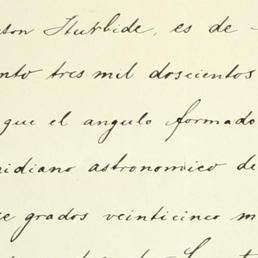 son Iturbide, es de
ento tres mil doscientos
que el angulo formado
ridiano astronomico de
ce grados veinticinco m